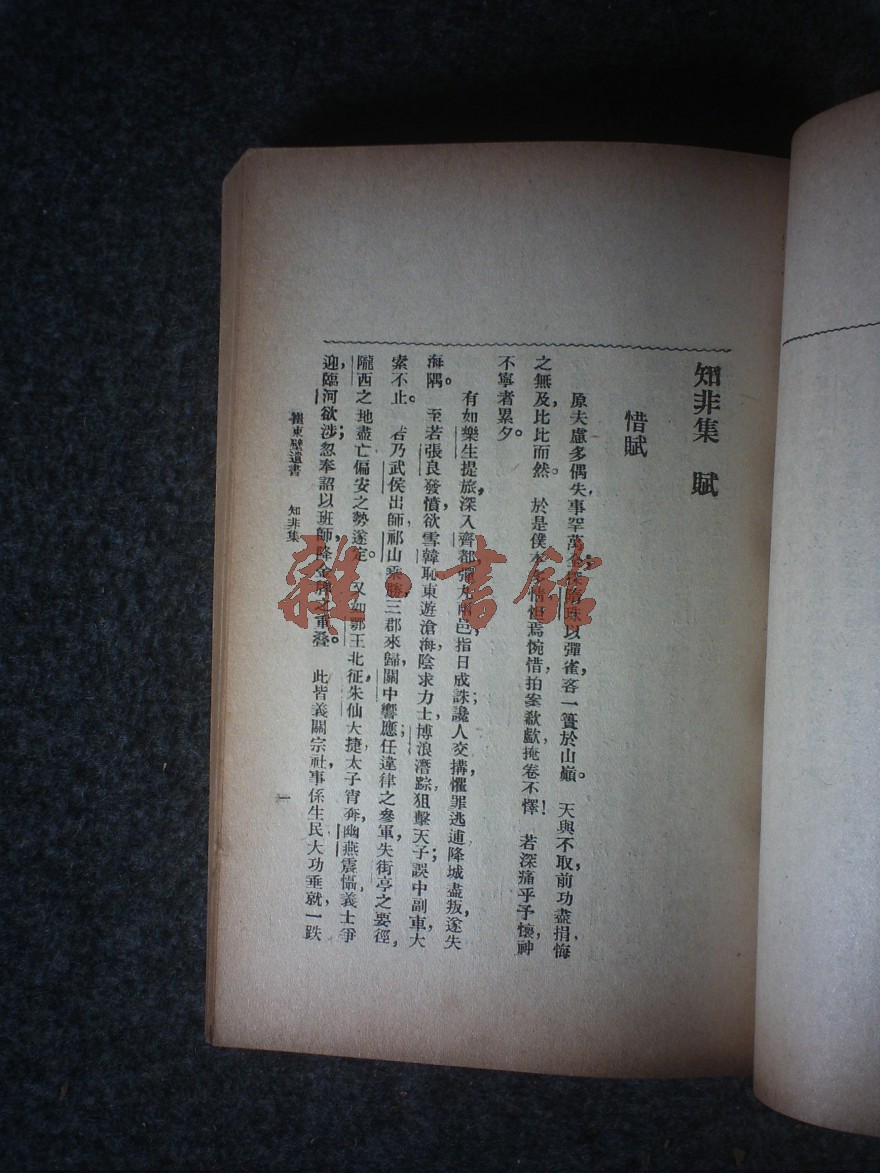 知非集 賦
惜賦
原夫慮多偶失，事罕萬全，珠以彈雀，吝一簣於山巔。天與不取，前功盡捐，悔
之無及，比比而然。於是僕本多情，怛焉惋惜，拍案歔欷，掩卷不懌！若深痛乎予懷，神
不寧者累夕。
有如樂生提旅，深入齊都，彈丸兩邑，指日成誅；讒人交搆，懼罪逃逋，降城盡叛，遂失
海隅。至若張良發憤，欲雪韓恥，東遊滄海，陰求力士，博浪潛踪，狙擊天子；誤中副車，大
索不止。若乃武侯出師，祁山乘勝，三郡來歸，關中響應；任違律之參軍，失街亭之要徑，
隴西之地盡亡，偏安之勢遂定。又如鄂王北征，朱仙大捷，太子宵奔，幽燕震慴，義士爭
迎，臨河欲涉；忽奉詔以班師，降金牌之重疊。此皆義關宗社，事係生民，大功垂就，一跌
崔東壁遺書 知非集 一
雜·書館